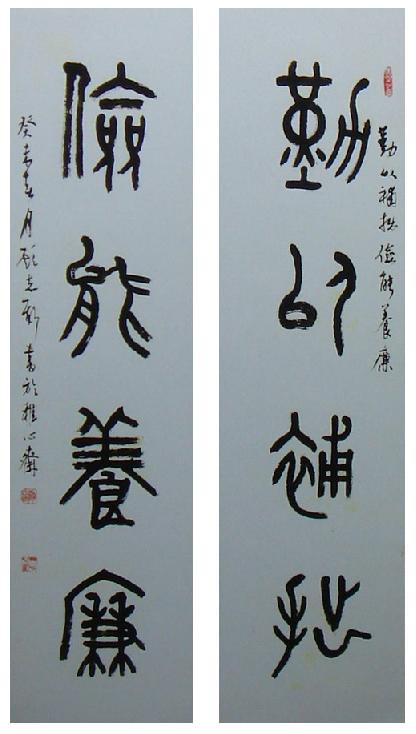 勤以補拙
勤以補拙儉能養廉
儉能養廉
癸未春月顧志新書於雅心齋